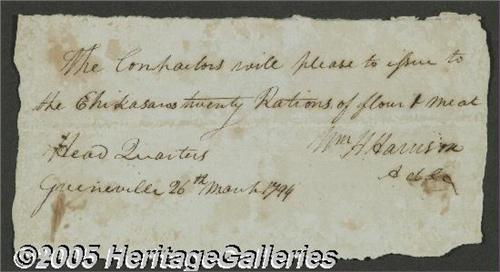 The Contractors will please to issue to
the Chikasaws twenty Rations of flour & meat
Head Quarters
Wm H Harrison
Greeneville 26th March 1794
A de C
©2005 HeritageGalleries